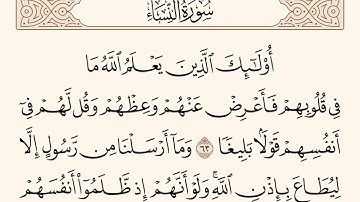 سُورَةُ النِّسَاءِ
أُوْلَٰٓئِكَ ٱلَّذِينَ يَعْلَمُ ٱللَّهُ مَا
فِي قُلُوبِهِمْ فَأَعْرِضْ عَنْهُمْ وَعِظْهُمْ وَقُل لَّهُمْ فِيٓ
أَنفُسِهِمْ قَوْلَۢا بَلِيغٗا ٦٣ وَمَآ أَرْسَلْنَا مِن رَّسُولٍ إِلَّا
لِيُطَاعَ بِإِذْنِ ٱللَّهِۚ وَلَوْ أَنَّهُمْ إِذ ظَّلَمُوٓاْ أَنفُسَهُمْ